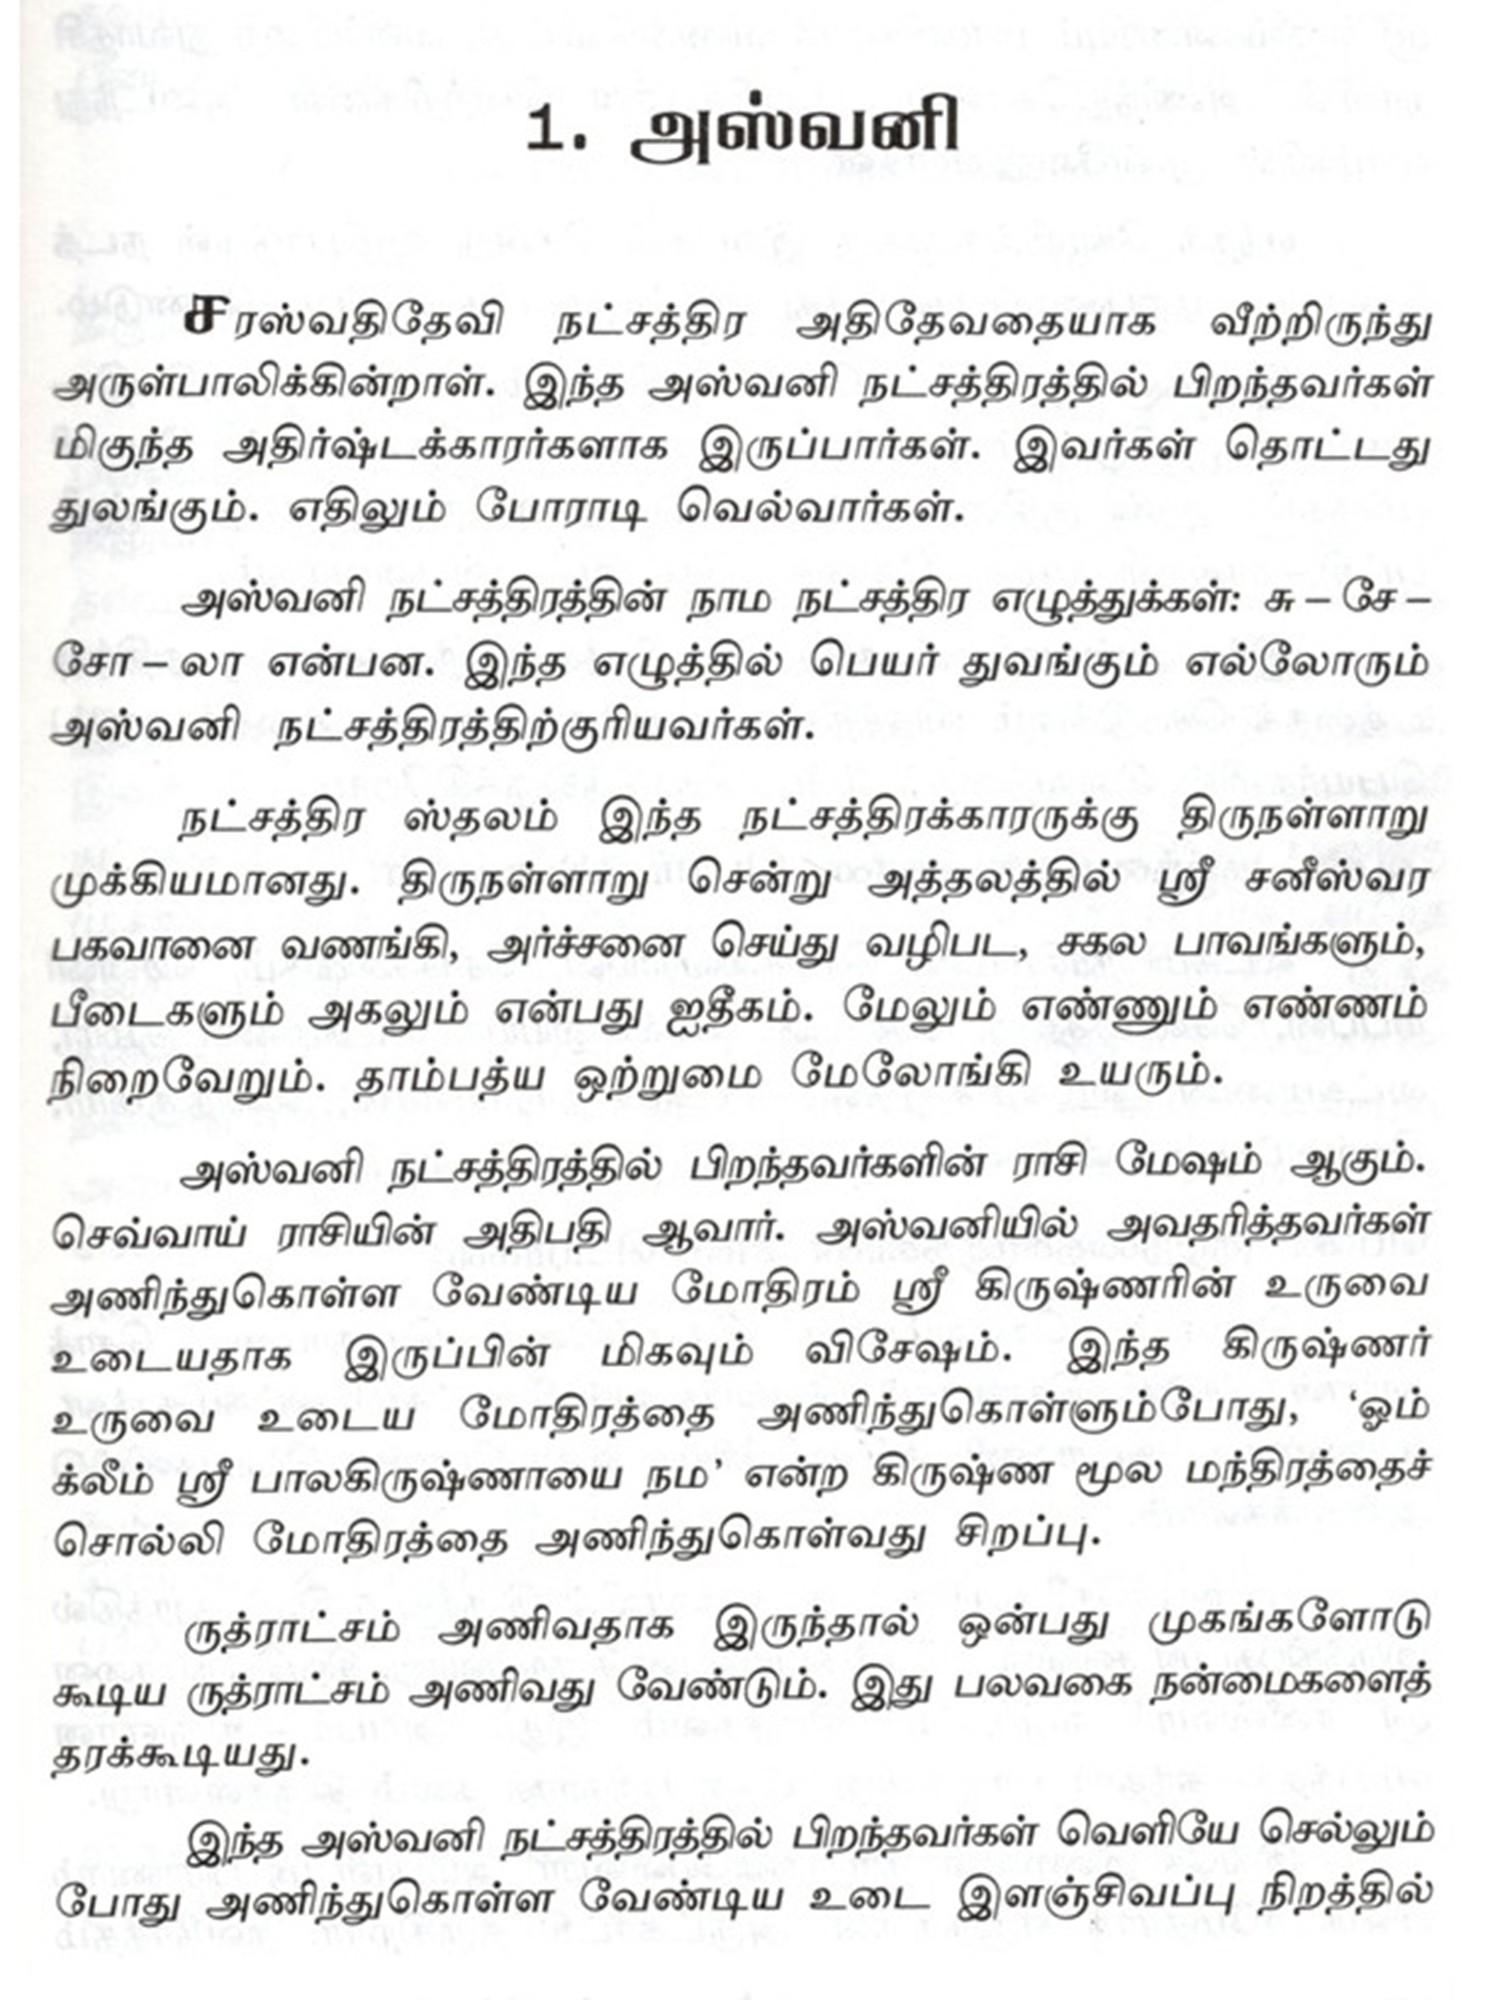 1. அஸ்வனி
சரஸ்வதிதேவி நட்சத்திர அதிதேவதையாக வீற்றிருந்து
அருள்பாலிக்கின்றாள். இந்த அஸ்வனி நட்சத்திரத்தில் பிறந்தவர்கள்
மிகுந்த அதிர்ஷ்டக்காரர்களாக இருப்பார்கள். இவர்கள் தொட்டது
துலங்கும். எதிலும் போராடி வெல்வார்கள்.
அஸ்வனி நட்சத்திரத்தின் நாம நட்சத்திர எழுத்துக்கள்: சு – சே –
சோ – லா என்பன. இந்த எழுத்தில் பெயர் துவங்கும் எல்லோரும்
அஸ்வனி நட்சத்திரத்திற்குரியவர்கள்.
நட்சத்திர ஸ்தலம் இந்த நட்சத்திரக்காரருக்கு திருநள்ளாறு
முக்கியமானது. திருநள்ளாறு சென்று அத்தலத்தில் ஸ்ரீ சனீஸ்வர
பகவானை வணங்கி, அர்ச்சனை செய்து வழிபட, சகல பாவங்களும்,
பீடைகளும் அகலும் என்பது ஐதீகம். மேலும் எண்ணும் எண்ணம்
நிறைவேறும். தாம்பத்ய ஒற்றுமை மேலோங்கி உயரும்.
அஸ்வனி நட்சத்திரத்தில் பிறந்தவர்களின் ராசி மேஷம் ஆகும்.
செவ்வாய் ராசியின் அதிபதி ஆவார். அஸ்வனியில் அவதரித்தவர்கள்
அணிந்துகொள்ள வேண்டிய மோதிரம் ஸ்ரீ கிருஷ்ணரின் உருவை
உடையதாக இருப்பின் மிகவும் விசேஷம். இந்த கிருஷ்ணர்
உருவை உடைய மோதிரத்தை அணிந்துகொள்ளும்போது, ‘ஓம்
க்லீம் ஸ்ரீ பாலகிருஷ்ணாயை நம’ என்ற கிருஷ்ண மூல மந்திரத்தைச்
சொல்லி மோதிரத்தை அணிந்துகொள்வது சிறப்பு.
ருத்ராட்சம் அணிவதாக இருந்தால் ஒன்பது முகங்களோடு
கூடிய ருத்ராட்சம் அணிவது வேண்டும். இது பலவகை நன்மைகளைத்
தரக்கூடியது.
இந்த அஸ்வனி நட்சத்திரத்தில் பிறந்தவர்கள் வெளியே செல்லும்
போது அணிந்துகொள்ள வேண்டிய உடை இளஞ்சிவப்பு நிறத்தில்